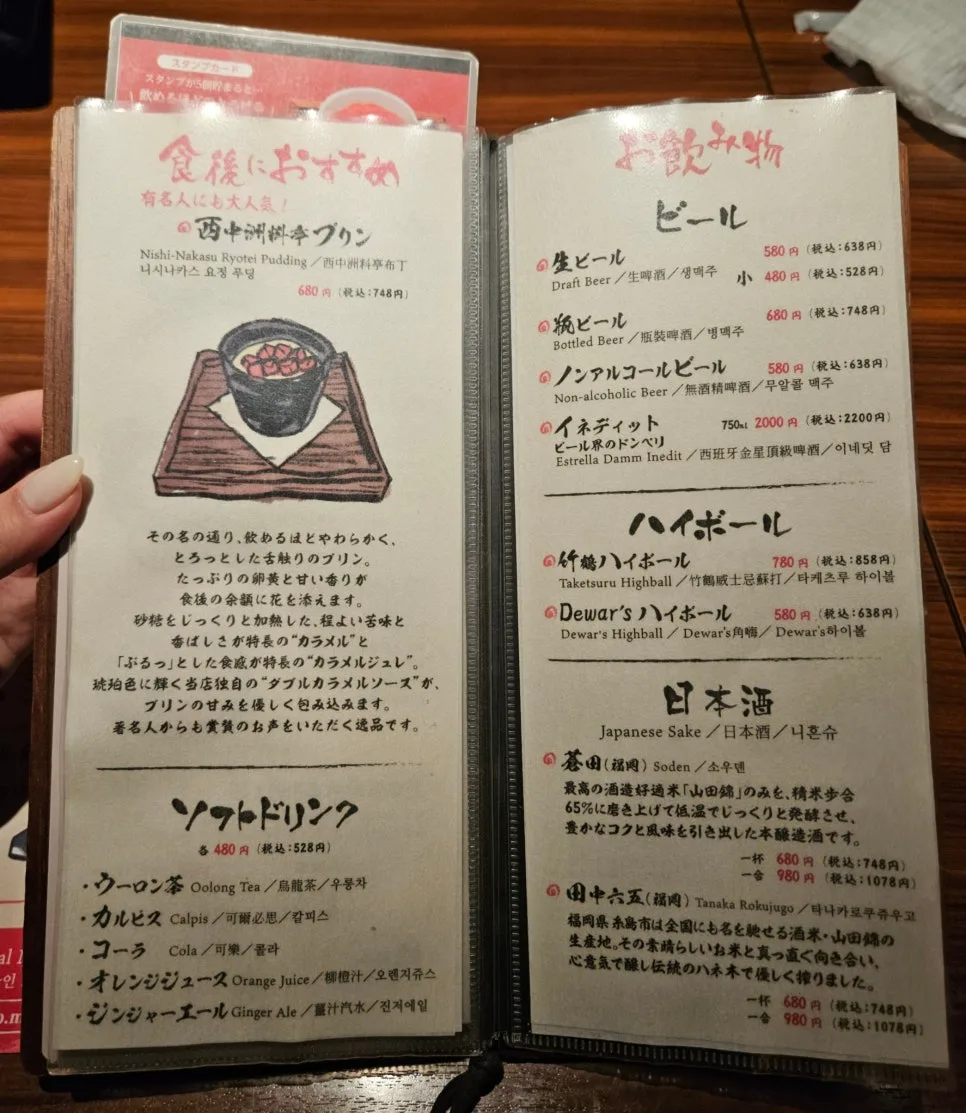 スタンプカード
スタンプが5個貯まると
食後におすすめ
有名人にも大人気！
西中洲料亭プリン
Nishi-Nakasu Ryotei Pudding／西中洲料亭布丁
니시나카스 요정 푸딩
680円（税込:748円）
その名の通り、飲めるほどやわらかく、
とろっとした舌触りのプリン。
たっぷりの卵黄と甘い香りが
食後の余韻に花を添えます。
砂糖をじっくりと加熱した、程よい苦味と
香ばしさが特長の“カラメル”と
「ぷるっ」とした食感が特長の“カラメルジュレ”。
琥珀色に輝く当店独自の“ダブルカラメルソース”が、
プリンの甘みを優しく包み込みます。
著名人からも賞賛のお声をいただく逸品です。
ソフトドリンク
各 480円（税込:528円）
・ウーロン茶 Oolong Tea／烏龍茶／우롱차
・カルピス Calpis／可爾必思／칼피스
・コーラ Cola／可樂／콜라
・オレンジジュース Orange Juice／柳橙汁／오렌지쥬스
・ジンジャーエール Ginger Ale／薑汁汽水／진저에일
お飲み物
ビール
生ビール 580円（税込:638円）
Draft Beer／生啤酒／생맥주 小 480円（税込:528円）
瓶ビール 680円（税込:748円）
Bottled Beer／瓶裝啤酒／병맥주
ノンアルコールビール 580円（税込:638円）
Non-alcoholic Beer／無酒精啤酒／무알콜 맥주
イネディット 750ml 2000円（税込:2200円）
ビール界のドンペリ
Estrella Damm Inedit／西班牙金星頂級啤酒／이네딧 담
ハイボール
竹鶴ハイボール 780円（税込:858円）
Taketsuru Highball／竹鶴威士忌蘇打／타케츠루 하이볼
Dewar's ハイボール 580円（税込:638円）
Dewar's Highball／Dewar's角嗨／Dewar's하이볼
日本酒
Japanese Sake／日本酒／니혼슈
蒼田（福岡） Soden／소우덴
最高の酒造好適米「山田錦」のみを、精米歩合
65％に磨き上げて低温でじっくりと発酵させ、
豊かなコクと風味を引き出した本醸造酒です。
一杯 680円（税込:748円）
一合 980円（税込:1078円）
田中六五（福岡） Tanaka Rokujugo／타나카로쿠쥬우고
福岡県糸島市は全国にも名を馳せる酒米・山田錦の
生産地。その素晴らしいお米と真っ直ぐ向き合い、
心意気で醸し伝統のハネ木で優しく搾りました。
一杯 680円（税込:748円）
一合 980円（税込:1078円）